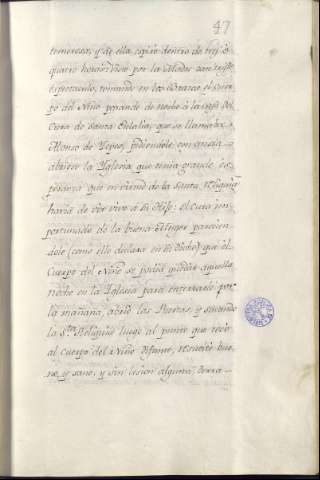 47
temerosa, y de ella espiró dentro de tres, ó
quatro horas. Visto por la Madre can triste
espectaculo, tomando en los Brazos el cuer-
po del Niño yaiande de noche à la casa del
Cura de Santa Olalla, que se llamaba
Alonso de Yepes, pidiendole con ansia
abriese la Iglesia, que tenia grande es-
peranza que en virtud de la Santa Reliquia
havia de ver vivo à su Hijo: el Cura im-
portunado de la buena Muger parecien-
dole (como ello declara en su dicho) que el
Cuerpo del Niño se podia quedar aquella
noche en la Iglesia para enterrarlo por
la mañana, abrió las Puertas, y sacando
la S.ta Reliquia luego al punto que tocò
al cuerpo del Niño difunto, resucitò bue-
no, y sano, y sin lesion alguna. Otra